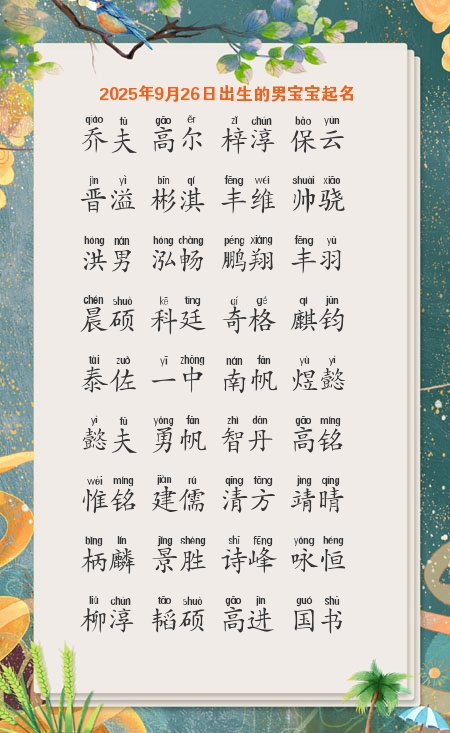 2025年9月26日出生的男宝宝起名
qiáo fū gāo ěr zǐ chún bǎo yún
乔夫 高尔 梓淳 保云
jìn yì bīn qí fēng wéi shuài xiāo
晋溢 彬淇 丰维 帅骁
hóng nán hóng chàng péng xiáng fēng yǔ
洪男 泓畅 鹏翔 丰羽
chén shuò kē tíng qí gé qí jūn
晨硕 科廷 奇格 麒钧
tài zuǒ yī zhōng nán fān yù yì
泰佐 一中 南帆 煜懿
yì fū yǒng fān zhì dān gāo míng
懿夫 勇帆 智丹 高铭
wéi míng jiàn rú qīng fāng jìng qíng
惟铭 建儒 清方 靖晴
bǐng lín jǐng shèng shī fēng yǒng héng
柄麟 景胜 诗峰 咏恒
liǔ chún tāo shuò gāo jìn guó shū
柳淳 韬硕 高进 国书